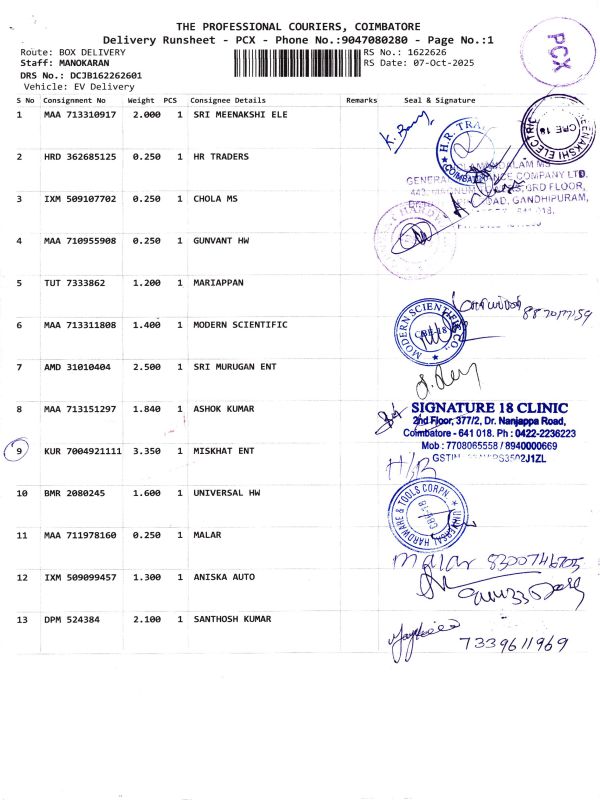 THE PROFESSIONAL COURIERS, COIMBATORE
Delivery Runsheet - PCX - Phone No.:9047080280 - Page No.:1
Route: BOX DELIVERY
RS No.: 1622626
Staff: MANOKARAN
RS Date: 07-Oct-2025
DRS No.: DCJB162262601
Vehicle: EV Delivery
PCX
S No Consignment No Weight PCS Consignee Details Remarks Seal & Signature
1 MAA 713310917 2.000 1 SRI MEENAKSHI ELE
CBE 18
2 HRD 362685125 0.250 1 HR TRADERS
COMPANY LTD.
3RD FLOOR,
3 IXM 509107702 0.250 1 CHOLA MS
GANDHIPURAM,
4 MAA 710955908 0.250 1 GUNVANT HW
5 TUT 7333862 1.200 1 MARIAPPAN
6 MAA 713311808 1.400 1 MODERN SCIENTIFIC
MODERN SCIENTIFIC CO.
7 AMD 31010404 2.500 1 SRI MURUGAN ENT
8 MAA 713151297 1.840 1 ASHOK KUMAR
SIGNATURE 18 CLINIC
2nd Floor, 377/2, Dr. Nanjappa Road,
Coimbatore - 641 018. Ph : 0422-2236223
Mob : 7708065558 / 8940000669
9 KUR 7004921111 3.350 1 MISKHAT ENT
H/B
10 BMR 2080245 1.600 1 UNIVERSAL HW
UNIVERSAL HARDWARE & TOOLS CORPN
CBE-18
11 MAA 711978160 0.250 1 MALAR
Malar 8300746705
12 IXM 509099457 1.300 1 ANISKA AUTO
13 DPM 524384 2.100 1 SANTHOSH KUMAR
7339611969